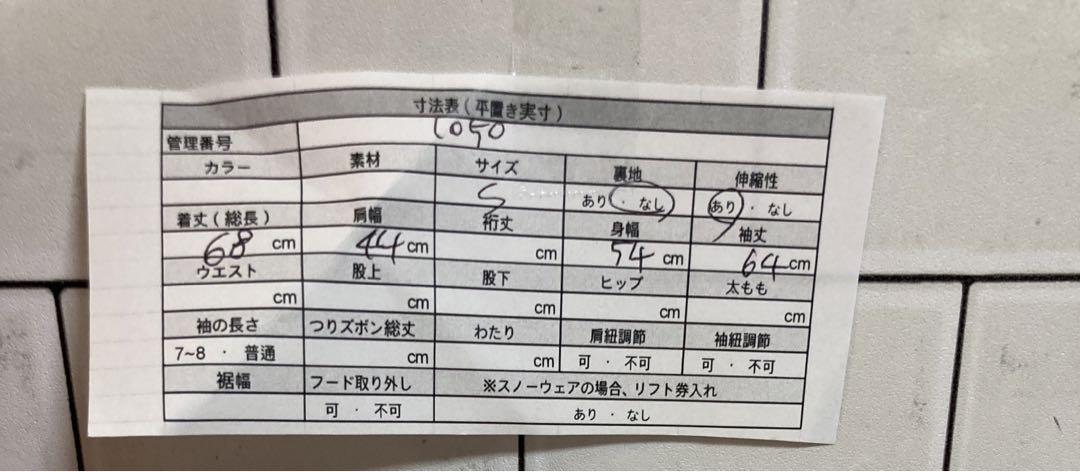 寸法表(平置き実寸)
管理番号 1050
カラー 素材 サイズ 裏地 伸縮性
S あり ・ なし あり ・ なし
着丈(総長) 肩幅 裄丈 身幅 袖丈
68 cm 44 cm cm 54 cm 64 cm
ウエスト 股上 股下 ヒップ 太もも
cm cm cm cm cm
袖の長さ つりズボン総丈 わたり 肩紐調節 袖紐調節
7~8 ・ 普通 cm cm 可 ・ 不可 可 ・ 不可
裾幅 フード取り外し ※スノーウェアの場合、リフト券入れ
可 ・ 不可 あり ・ なし